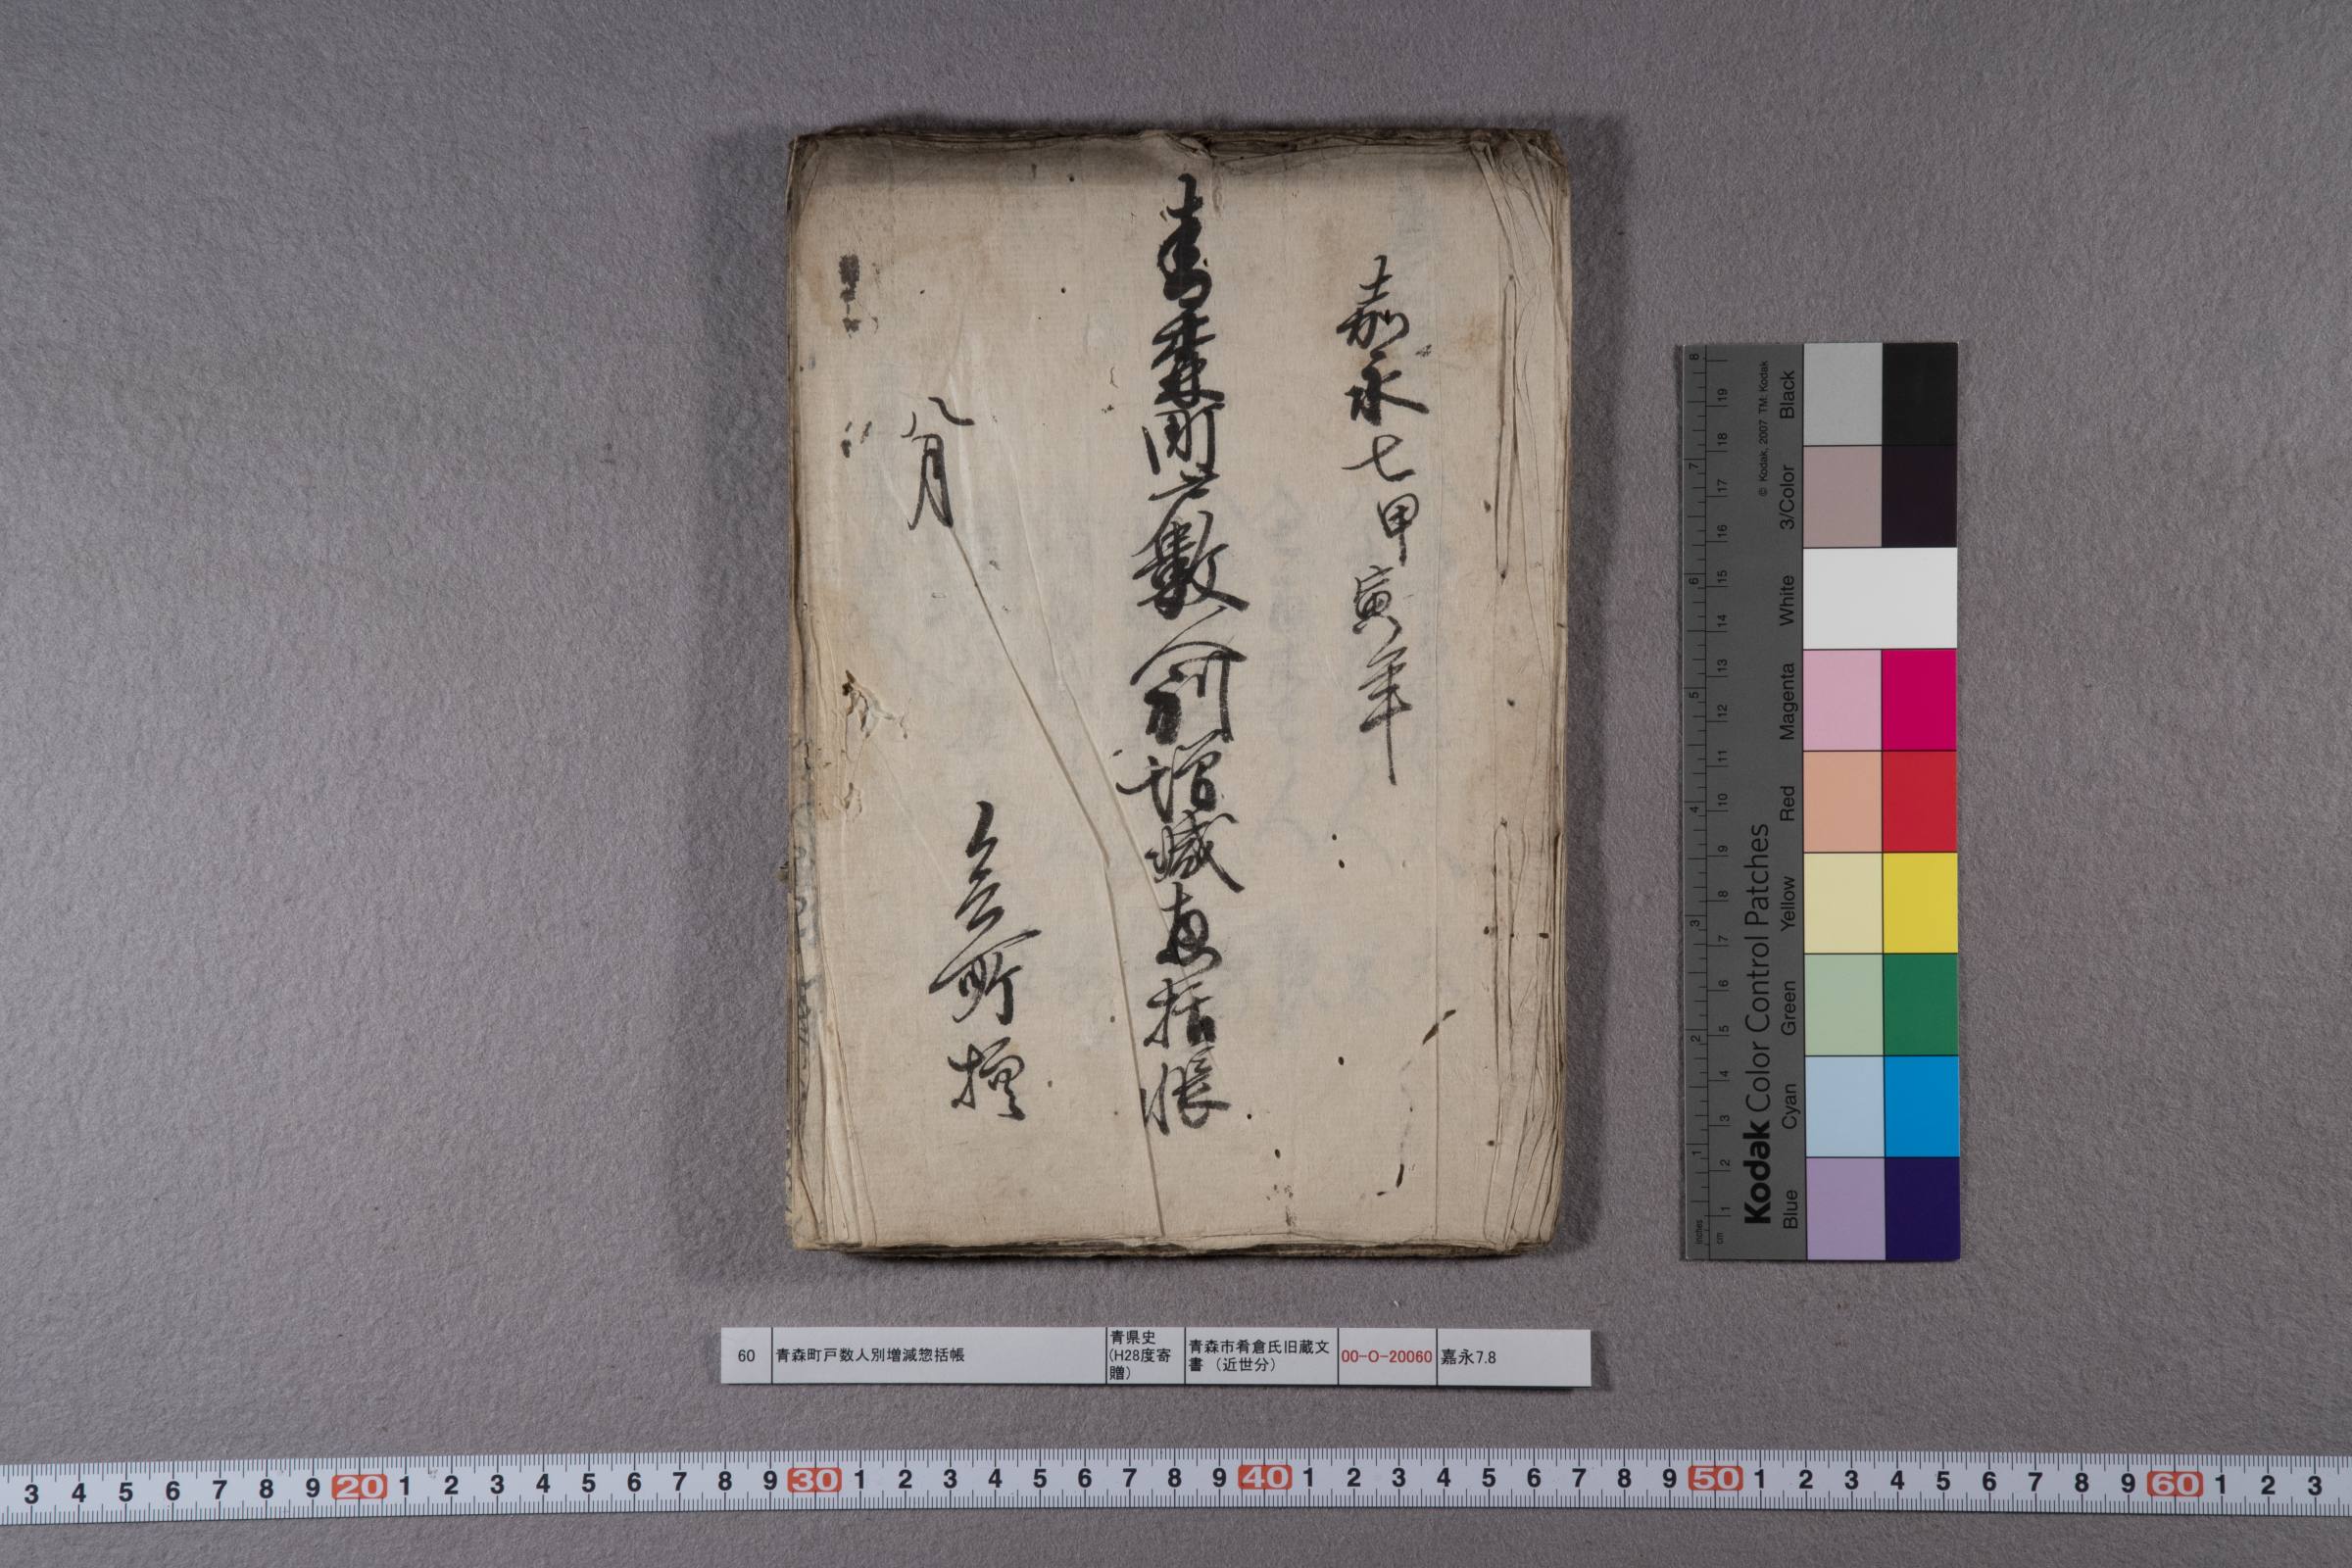 嘉永七甲寅年
青森町戸数人別増減惣括帳
八月
町
60
青森町戸数人別増減惣括帳
青県史
(H28度寄
贈)
青森市肴倉氏旧蔵文
書（近世分）
00-O-20060
嘉永7.8
Kodak Color Control Patches
© Kodak, 2007 TM: Kodak
Blue Cyan Green Yellow Red Magenta White 3/Color Black
inches 1 2 3 4 5 6 7 8
cm 1 2 3 4 5 6 7 8 9 10 11 12 13 14 15 16 17 18 19
3 4 5 6 7 8 9 20 1 2 3 4 5 6 7 8 9 30 1 2 3 4 5 6 7 8 9 40 1 2 3 4 5 6 7 8 9 50 1 2 3 4 5 6 7 8 9 60 1 2 3